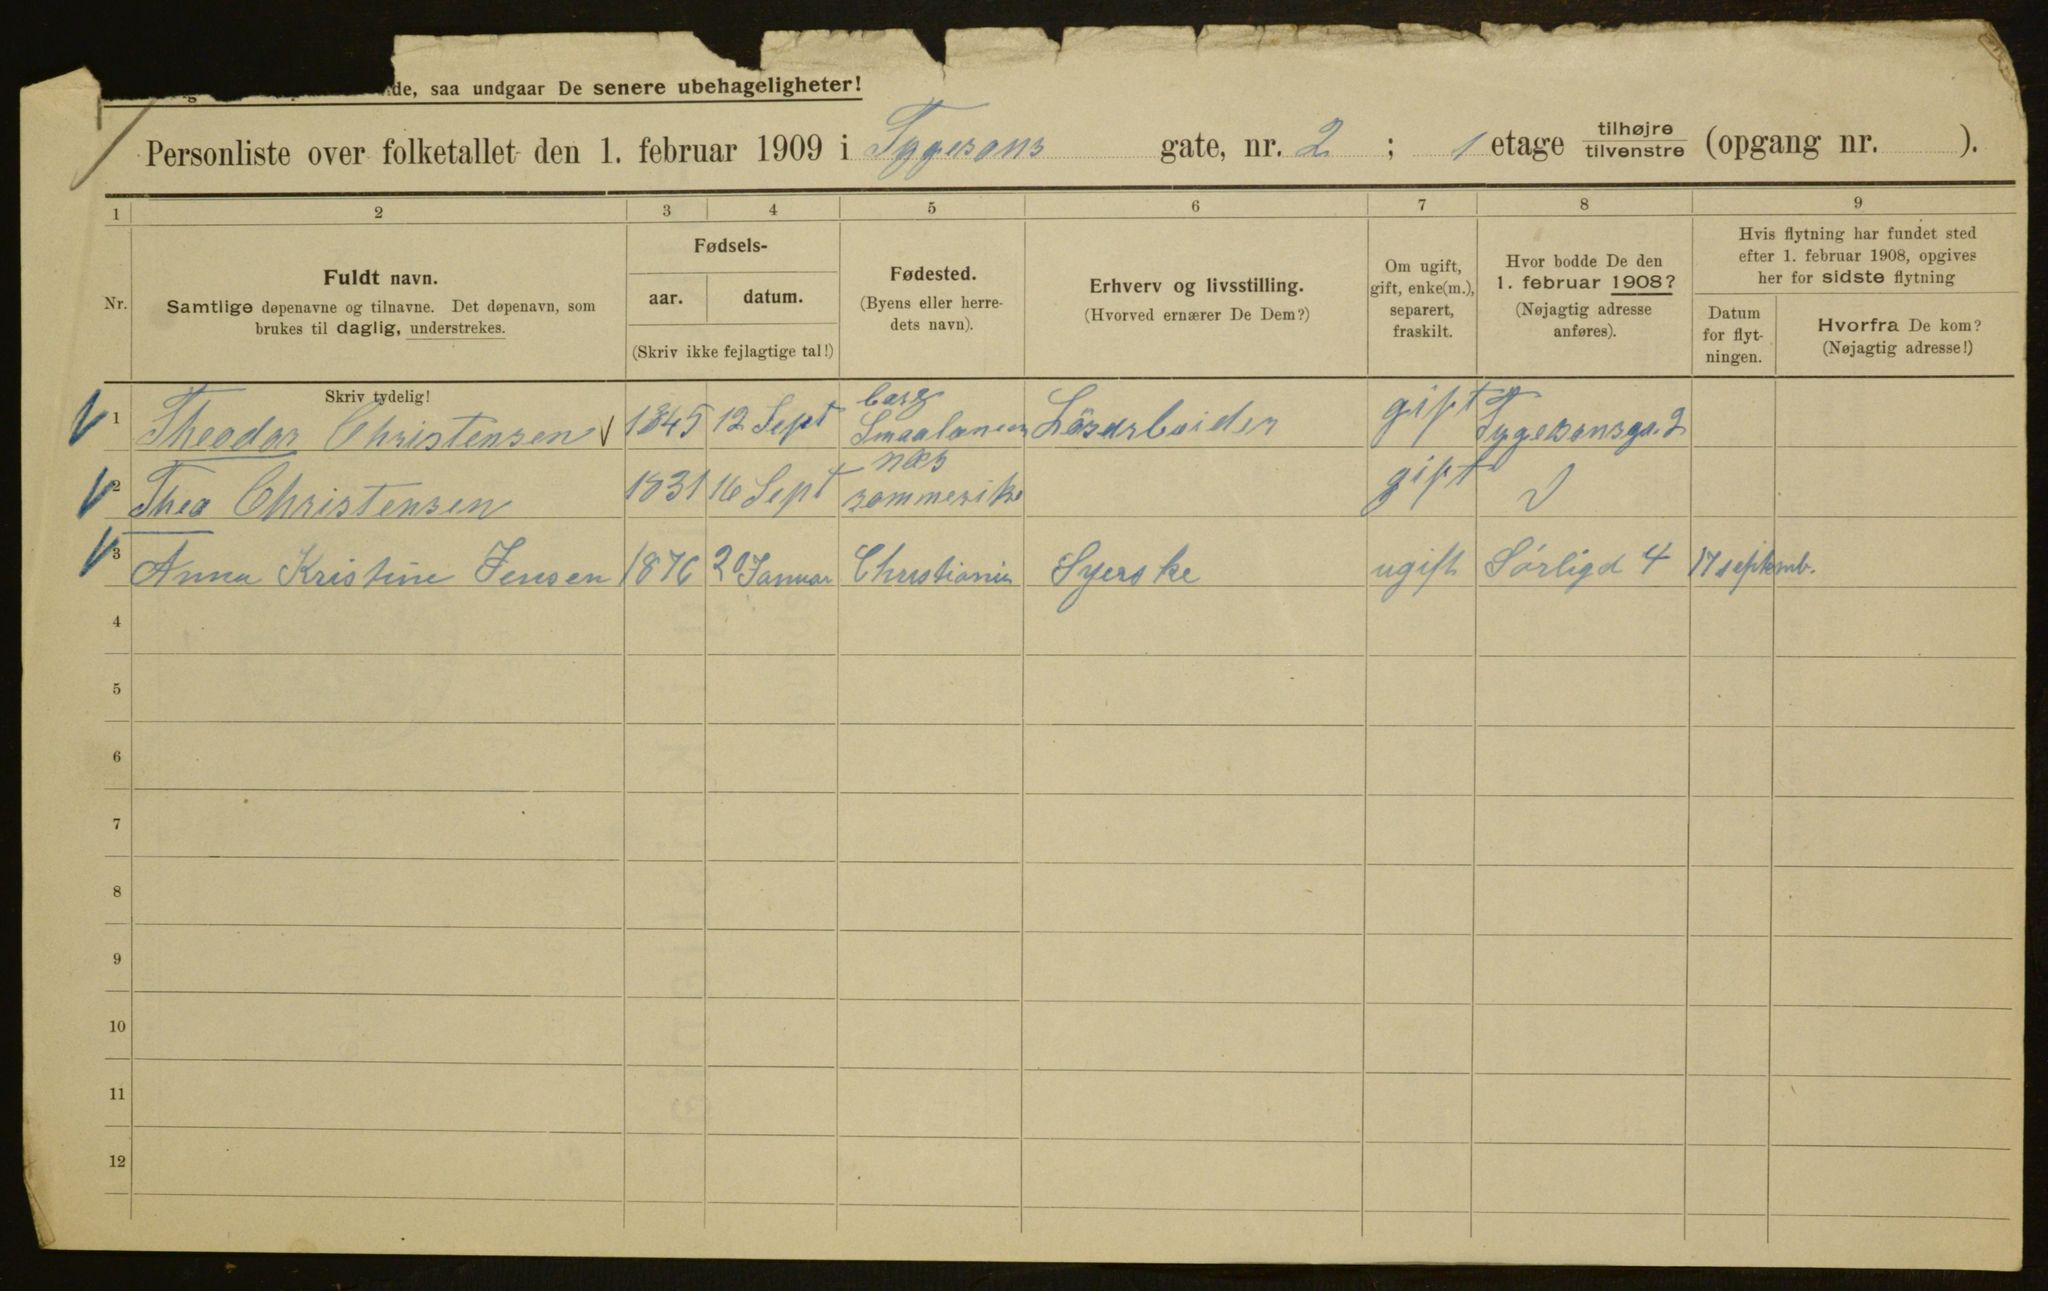 de, saa undgaar De senere ubehageligheter!
Personliste over folketallet den 1. februar 1909 i Tygesons gate, nr. 2 ; 1 etage tilhøjre/tilvenstre (opgang nr. ).
1 2 3 4 5 6 7 8 9
Nr.
Fuldt navn.
Samtlige døpenavne og tilnavne. Det døpenavn, som
brukes til daglig, understrekes.
Skriv tydelig!
Fødsels-
aar. datum.
(Skriv ikke fejlagtige tal!)
Fødested.
(Byens eller herre-
dets navn).
Erhverv og livsstilling.
(Hvorved ernærer De Dem?)
Om ugift,
gift, enke(m.),
separert,
fraskilt.
Hvor bodde De den
1. februar 1908?
(Nøjagtig adresse
anføres).
Hvis flytning har fundet sted
efter 1. februar 1908, opgives
her for sidste flytning
Datum
for flyt-
ningen.
Hvorfra De kom?
(Nøjagtig adresse!)
1 Theodor Christensen 1845 12 Sept Smaalenene Lösarbeider gift Tygesonsga. 2
2 Thea Christensen 1831 16 Sept næs rommerike gift
3 Anna Kristine Jensen 1876 20 Januar Christiania Syerske ugift Sørligd 4 17 septemb.
4
5
6
7
8
9
10
11
12